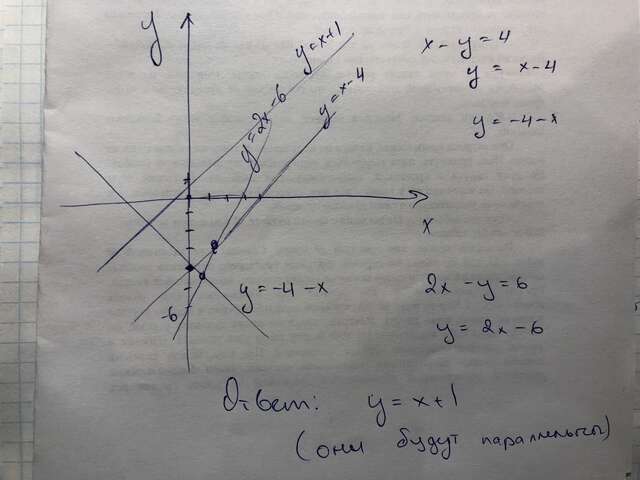 y
-6
y = 2x - 6
y = x+1
y = x - 4
y = -4 - x
x
x - y = 4
y = x - 4
y = -4 - x
2x - y = 6
y = 2x - 6
Ответ: y = x + 1
(они будут параллельны)